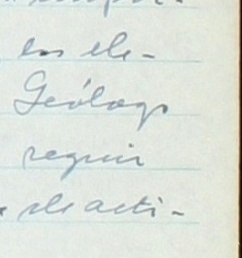 en ele-
Geólogo
seguir
de acti-